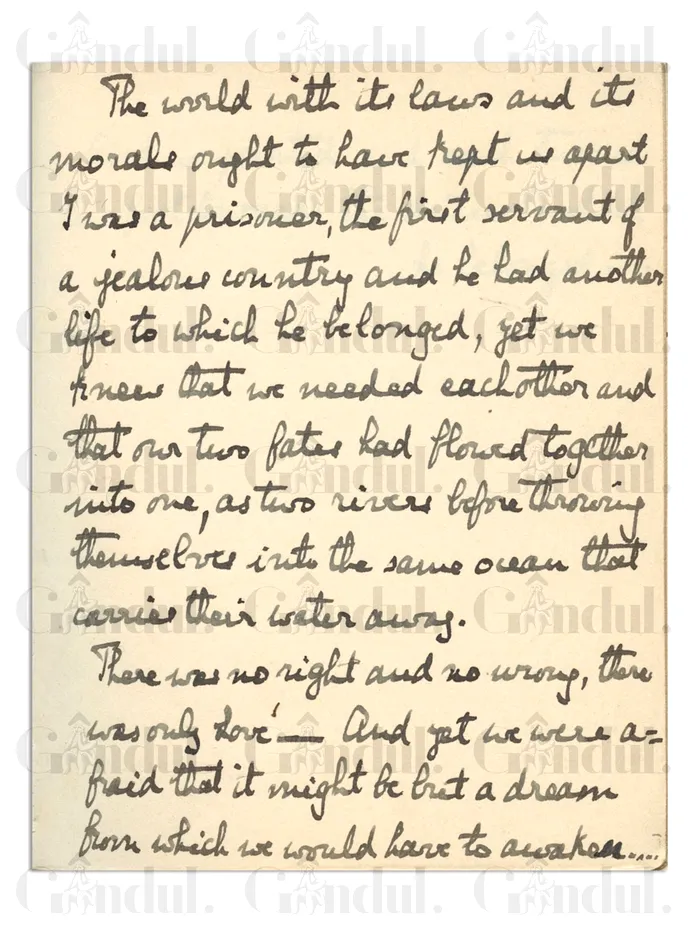 The world with its laws and its
morals ought to have kept us apart
I was a prisoner, the first servant of
a jealous country and he had another
life to which he belonged, yet we
knew that we needed eachother and
that our two fates had flowed together
into one, as two rivers before throwing
themselves into the same ocean that
carries their water away.
There was no right and no wrong, there
was only Love'— And yet we were a=
fraid that it might be but a dream
from which we would have to awaken.....
Gondul.